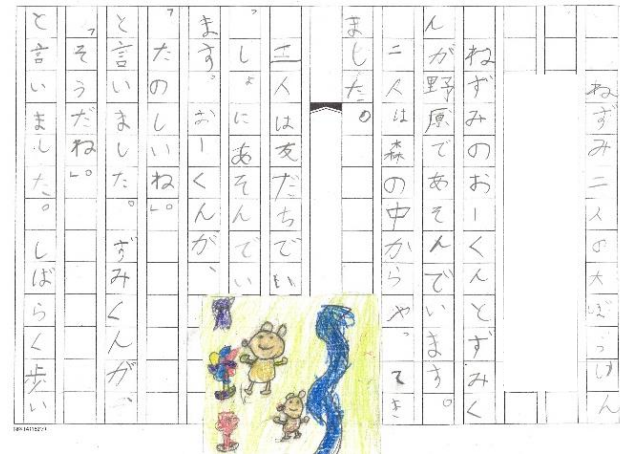 ねずみ二人の大ぼうけん
ねずみのおーくんとずみく
んが野原であそんでいます。
二人は森の中からやってき
ました。
二人は友だちでい
っしょにあそんでい
ます。おーくんが、
「たのしいね」。
と言いました。ずみくんが、
「そうだね」。
と言いました。しばらく歩い